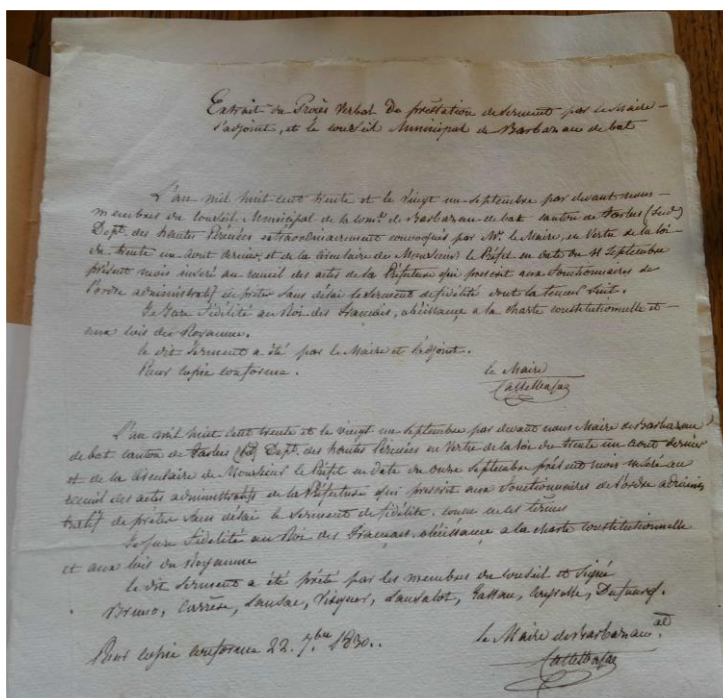 Extrait du Procès Verbal de prestation de Serment par le Maire
l'adjoint, et le conseil Municipal de Barbazan debat
L'an mil huit cent trente et le vingt un septembre par devant nous
membres du Conseil Municipal de la com.e de Barbazan debat canton de Tarbes (Sud)
Dept. des hautes Pirénées extraordinairement convoqués par Mr. le Maire, en Vertu de la loi
du trente un aout dernier, et de la Circulaire de Monsieur le Préfet en date du 11 Septembre
présent mois inséré au recueil des actes de la Préfecture qui prescrit aux fonctionnaires de
l'ordre administratif de prêter sans délai le Serment de fidélité dont la teneur suit.
Je Jure fidélité au Roi des français, obéissance a la charte constitutionnelle et
aux lois du Royaume.
le dit Serment a été par le Maire et l'adjoint.
Pour copie conforme. le Maire
L'an mil huit cent trente et le vingt un septembre par devant nous Maire de Barbazan
debat canton de Tarbes Dept. des hautes Pirénées en Vertu de la loi du trente un aout dernier
et de la Circulaire de Monsieur le Préfet en date du onze Septembre présent mois inséré au
recueil des actes administratifs de la Préfecture qui prescrit aux fonctionnaires de l'ordre adminis
tratif de prêter sans délai le Serment de fidélité, en les termes
Je Jure fidélité au Roi des français, obéissance a la charte constitutionnelle
et aux lois du Royaume
le dit Serment a été prêté par les membres du Conseil et Signé
Bruno, Carrère, Lansac, Lansalot, Gassan, Dufourcq.
Pour copie conforme 22. 7.bre 1830.. le Maire de Barbazan